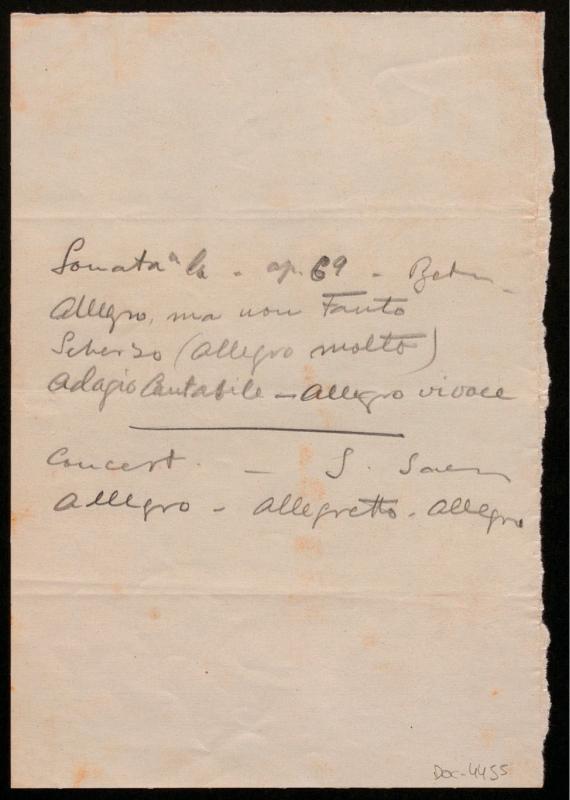 Sonata a la - op. 69 - Betn.
Allegro, ma non Tanto
Scherzo (Allegro molto)
Adagio Cantabile - Allegro vivace
Concert. - S. Saens
Allegro - Allegretto - Allegro
Doc-4455